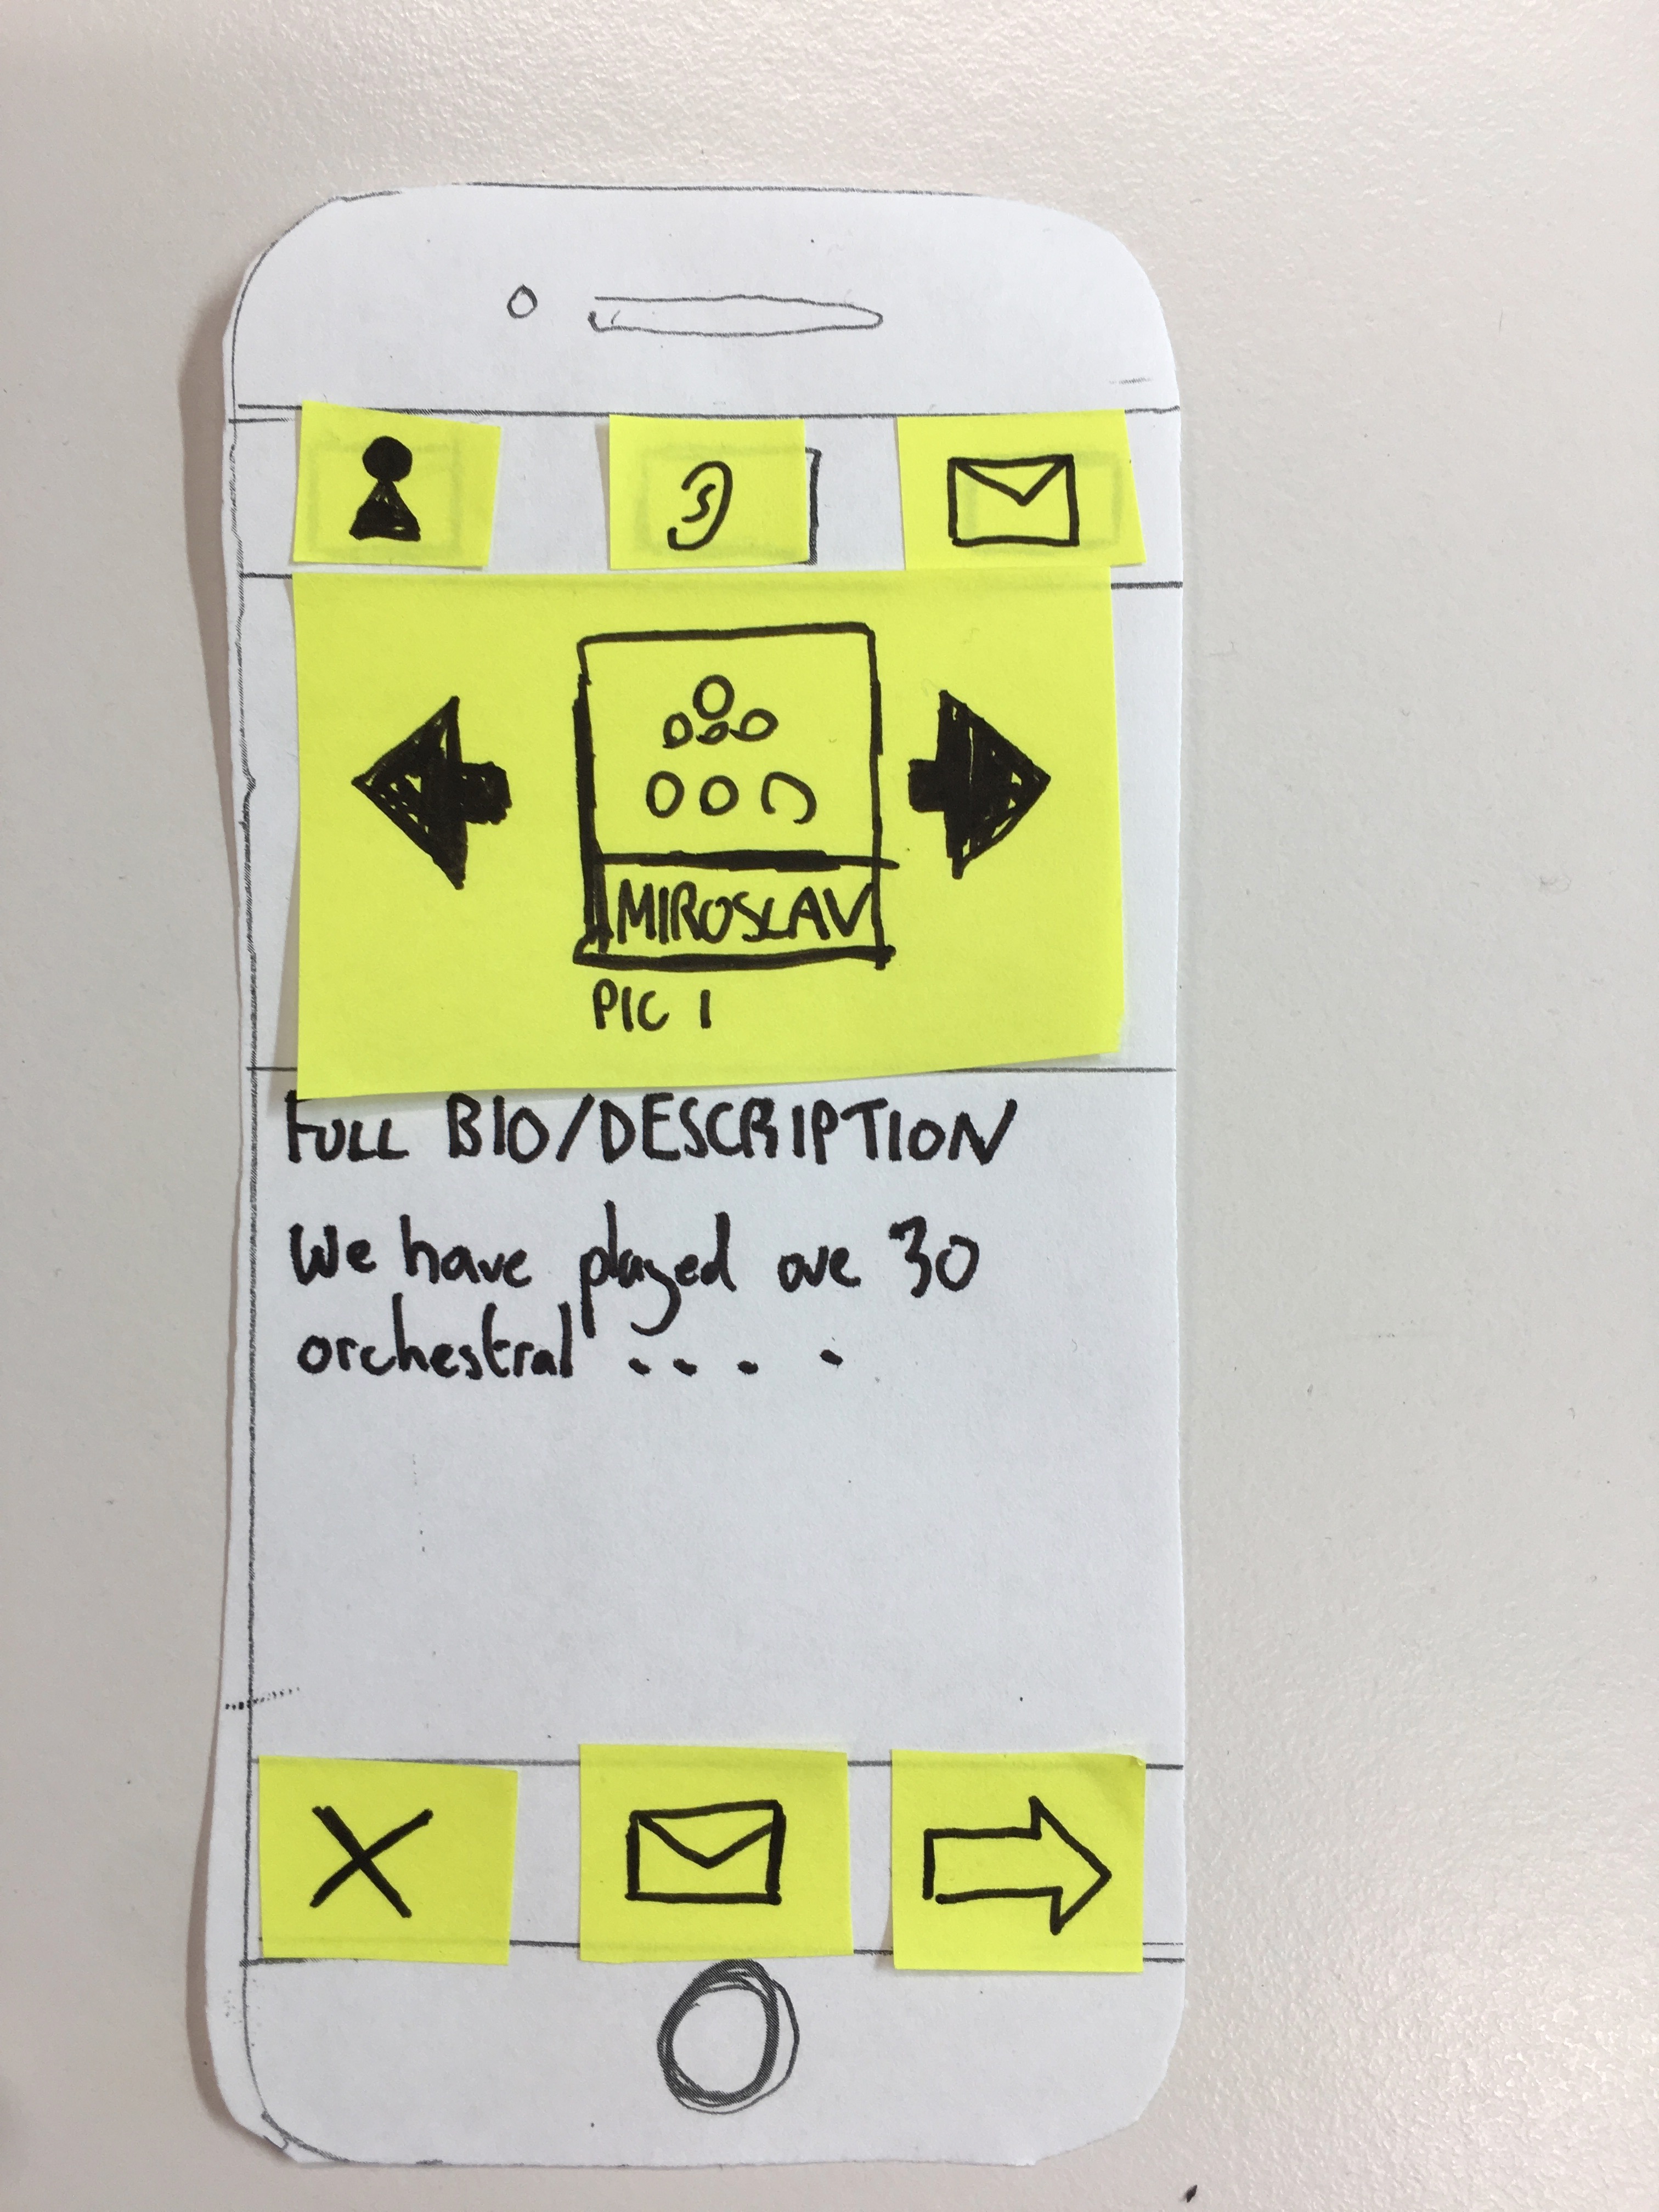 MIROSLAV
PIC 1
FULL BIO/DESCRIPTION
We have played ove 30
orchestral . . . .